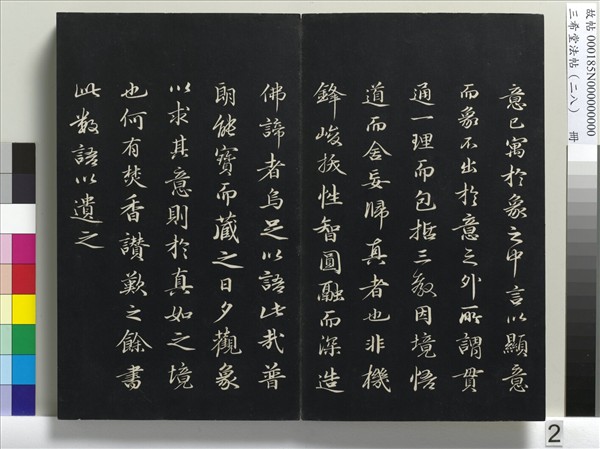 意已寓於象之中言以顯意
而象不出於意之外所謂貫
通一理而包括三教因境悟
道而舍妄歸真者也非機
鋒峻拔性智圓融而深造
佛諦者烏足以語此哉普
朗能寶而藏之日夕觀象
以求其意則於真如之境
也何有焚香讚歎之餘書
此數語以遺之
故帖 000185N000000000
三希堂法帖(二八) 冊
2